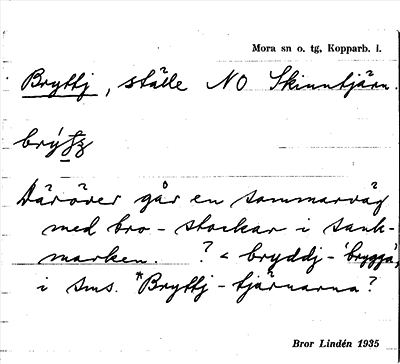 Mora sn o. tg, Kopparb. l.
Bryttj, ställe NO Skinntjärn.
brýtʃ
Däröver går en sommarväg
med bro-stockar i sank-
marken. ? < bryddj- 'brygga',
i sms. *Bryttj-tjärnarna?
Bror Lindén 1935